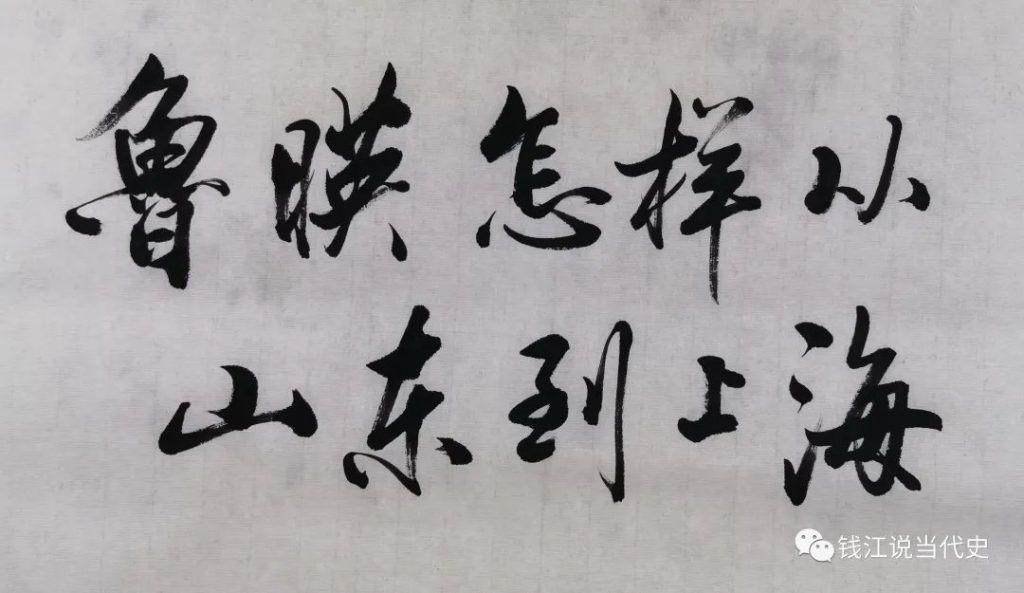 鲁暎怎样从
山东到上海
钱江说当代史